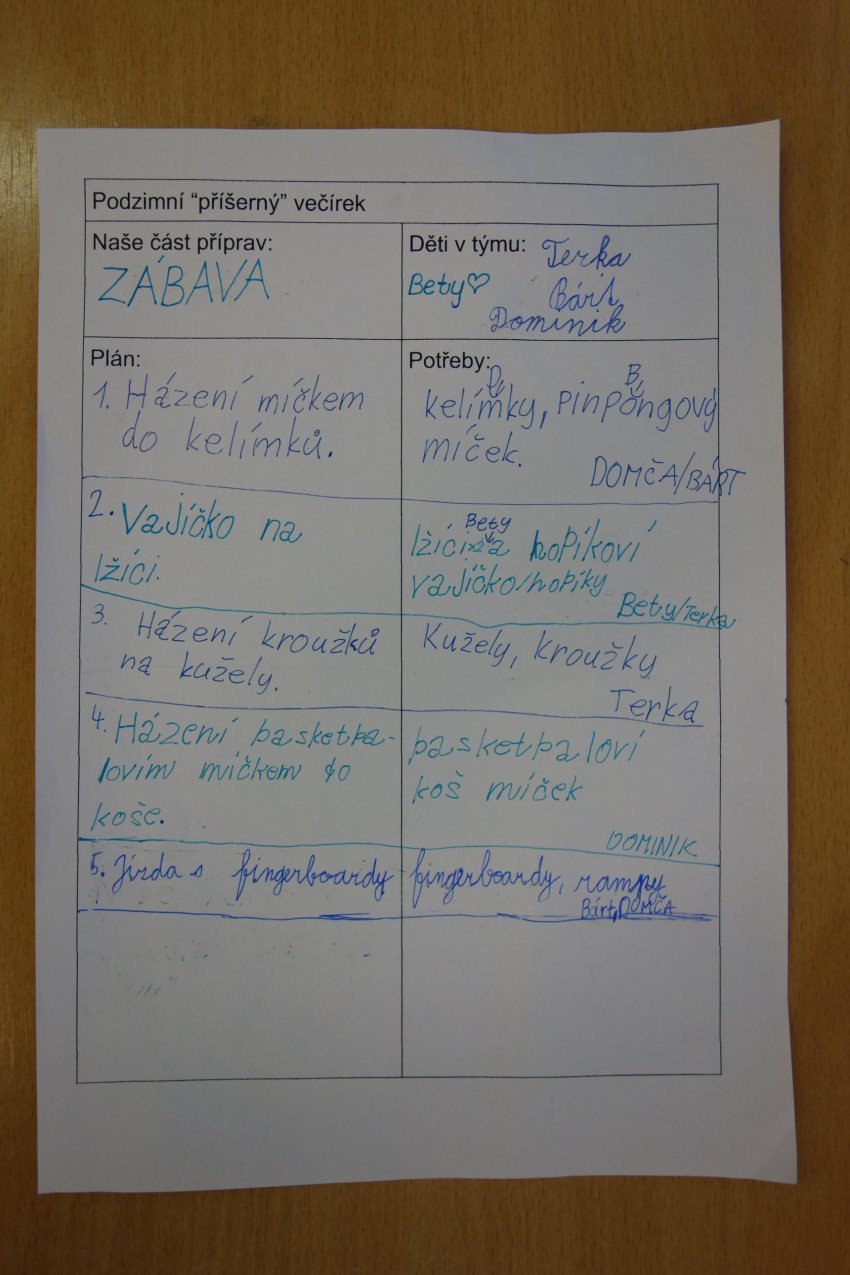 Podzimní “příšerný” večírek
Naše část příprav:
ZÁBAVA
Děti v týmu: Terka
Bety♡ Bárt
Dominik
Plán:
1. Házení míčkem
do kelímků.
Potřeby:
D B
kelímky, pinpongový
míček.
DOMČA/BÁRT
2. Vajíčko na
lžíci.
Bety
lžíci x2 a hopíkoví
vajíčko/hopíky
Bety/Terka
3. Házení kroužků
na kužely.
Kužely, kroužky
Terka
4. Házení basketba-
lovím míčkem do
koše.
basketbaloví
koš míček
DOMINIK
5. Jízda s fingerboardy
fingerboardy, rampy
Bárt, DOMČA